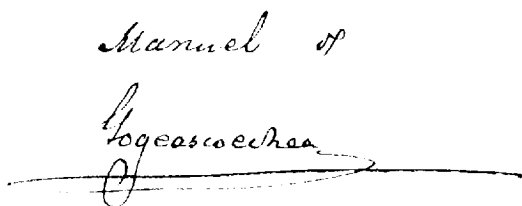 Manuel de
Gogeascoechea